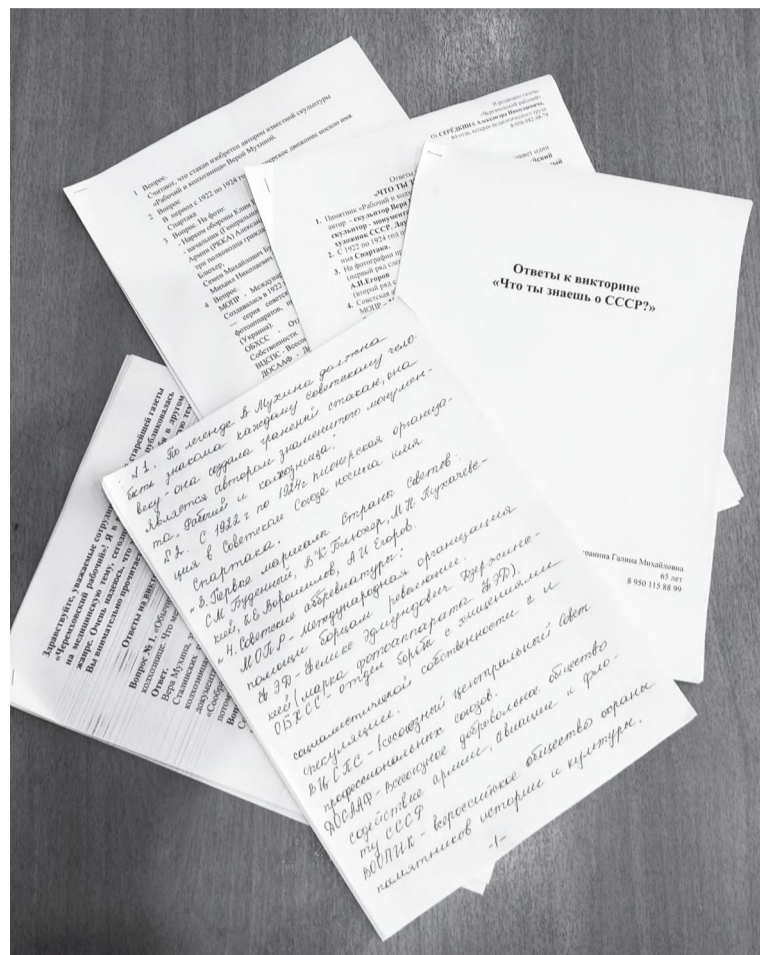 1 Вопрос.
Считают, что стакан изобретен автором известной скульптуры
«Рабочий и колхозница» Верой Мухиной.
2 Вопрос
В период с 1922 по 1924 го
нерское движение носило имя
Спартака
3 Вопрос. На фото:
- Нарком обороны Клим
- начальник (Генеральн
Армии (РККА) Алексан
три полководца граждан
Блюхер,
Семен Михайлович Бу
Михаил Николаевич
4 Вопрос
МОПР - Междунар
Создавалась в 1922
— серия советск
фотоаппаратов, пр
(Украина).
ОБХСС - От
Собственности.
ВЦСПС - Всесо
ДОСААФ - До
В редакцию газеты
«Черемховский рабочий»
От СЕРЁДКИНА Александра Николаевича,
64 года, ветеран педагогического труда
8-950-082-48-79
Ответы
«ЧТО ТЫ З
1. Памятник «Рабочий и колх
автор - скульптор Вера
скульптор - монумент
художник СССР. Лау
2. С 1922 по 1924 год п
имя Спартака.
3. На фотографии пр
(первый ряд сле
А.И.Егоров
(второй ряд с
4. Советская а
МОПР -
Ответы к викторине
«Что ты знаешь о СССР?»
Галина Михайловна
65 лет
8 950 115 88 99
старейшей газеты
публиковалась
я в другом
Здравствуйте, уважаемые сотрудн
«Черемховский рабочий»! Я в
на медицинскую тему, сегодн
жанре. Очень надеюсь, что
Вы внимательно прочитает
Ответы на вик
Вопрос № 1. «Обычн
колхознице. Что ме
Ответ
Вера Мухина, з
Сталинских
колхозница
документ
«Сообр
поточ
Воп
№1. По легенде В. Мухина должна
быть знакома каждому советскому чело-
веку - она создала граненый стакан, она
является автором знаменитого монумен-
та „Рабочий и колхозница."
№2. С 1922г по 1924г пионерская организа-
ция в Советском Союзе носила имя
Спартака.
„3. Первое маршалы Страны Советов:
С.М. Буденный, В.К. Блюхер, М.Н. Тухачевс-
кий, К.Е. Ворошилов, А.И Егоров.
„4. Советские аббревиатуры:
МОПР - международная организация
помощи борцам революции.
ФЭД - Феликс Эдмундович Дзержинс-
кий (марка фотоаппарата ФЭД).
ОБХСС - отдел борьбы с хищениями
социалистической собственности и
спекуляцией.
ВЦСПС - Всесоюзный центральный совет
профессиональных союзов.
ДОСААФ - Всесоюзное добровольное общество
содействие армии, авиации и фло-
ту СССР
ВООПИК - всероссийское общество охраны
памятников истории и культуры.
-1-